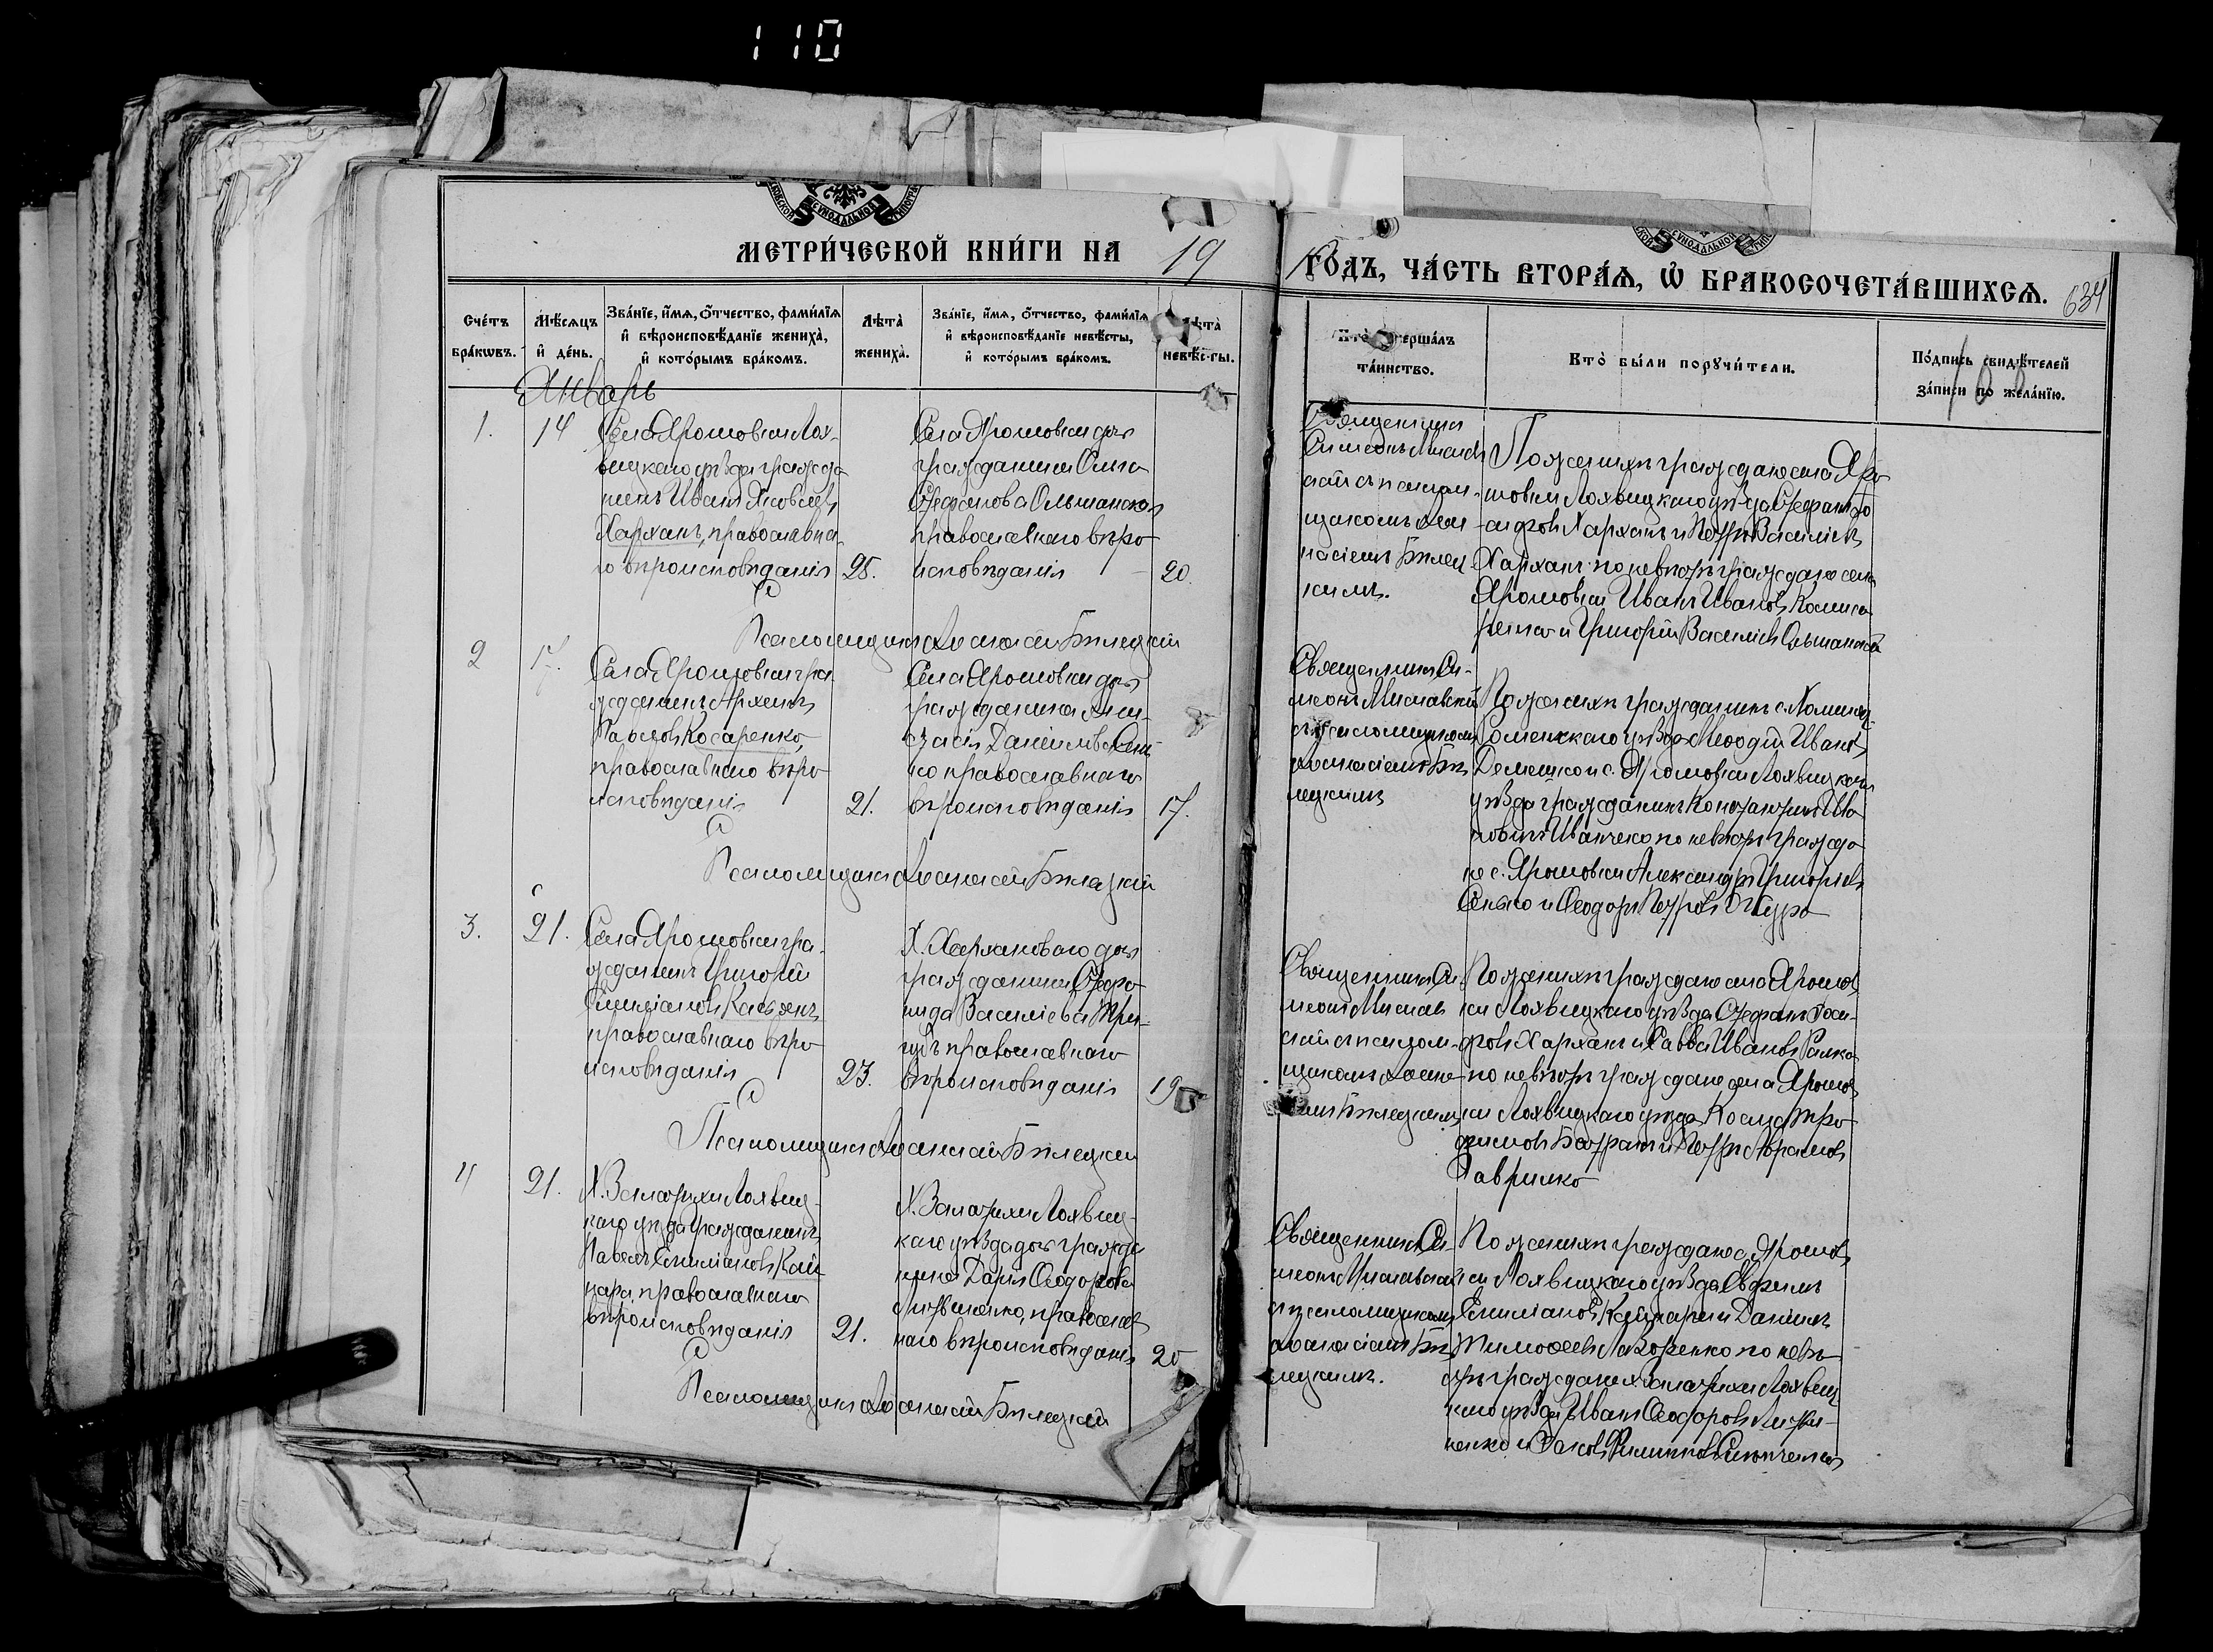 110
МЕТРИ́ЧЕСКОЙ КНИ́ГИ НА 19
ГО́ДЪ, ЧА́СТЬ ВТОРА́Я, Ѡ БРАКОСОЧЕТА́ВШИХСЯ.
634
Сче́тъ бра́кωвъ.
Мѣ́сяцъ и҆ де́нь.
Зва́нїе, и҆́мя, ѻ҆́тчество, фами́лїя
и҆ вѣроисповѣ́данїе жениха̀,
и҆ кото́рымъ бра́комъ.
Лѣта̀ жениха̀.
Зва́нїе, и҆́мя, ѻ҆́тчество, фами́лїя
и҆ вѣроисповѣ́данїе невѣ́сты,
и҆ кото́рымъ бра́комъ.
Лѣта̀ невѣ́сты.
Кто̀ соверша́лъ
та́инство.
Кто̀ бы́ли порꙋчи́тели.
По́дпись свидѣ́телей
за́писи по жела́нїю.
Январь
1.
14
Села Ярошовки Лох-
вицкаго уѣзда гражда
нинъ Иванъ Яковлевъ
Харханъ, православна-
го вѣроисповѣданія
25.
Села Ярошовки дочь
гражданина Ольга
Стефанова Ольшанская
православнаго вѣро
исповѣданія
20.
Священникъ
Симеонъ Мислав
скій съ псалом-
щикомъ Аѳа
насіемъ Билец
кимъ.
По женихѣ граждане села Яро
шовки Лохвицкаго уѣзда Стефанъ
Харханъ и Петръ Василіевъ
Харханъ по невѣстѣ граждане села
Ярошовки Иванъ Ивановъ
и Григорій Василіевъ Ольшанскій
Псаломщикъ Аѳанасій Билецкій
2
17.
Села Ярошовки гра
жданинъ
Павловъ Косаренко,
православнаго вѣро
исповѣданія
21.
Села Ярошовки дочь
гражданина Ана-
стасія Даніилова
православнаго
вѣроисповѣданія
17.
Священникъ Си-
меонъ Миславскій
съ псаломщикомъ
Аѳанасіемъ Би
лецкимъ
По женихѣ гражданинъ с.
Роменскаго уѣзда Меѳодій Ивановъ
и с. Ярошовки Лохвицкаго
уѣзда гражданинъ Ива
новъ по невѣстѣ гражда
не с. Ярошовки Александръ Григоріевъ
и Ѳеодоръ Петровъ
Псаломщикъ Аѳанасій Билецкій
3.
21.
Села Ярошовки гра-
жданинъ Григорій
Емиліановъ Касьянъ
православнаго вѣро
исповѣданія
23.
Х. Харханового дочь
гражданина Стефа
нида Василіева
православнаго
вѣроисповѣданія
19
Священникъ Си-
меонъ Мислав
скій съ псалом-
щикомъ Аѳана
сіемъ Билецкимъ
По женихѣ граждане села Ярошов
ки Лохвицкаго уѣзда Стефанъ
Харханъ и Савва Ивановъ
по невѣстѣ граждане села Ярошов
ки Лохвицкаго уѣзда Косма Тро
фимовъ и Петръ Абрамовъ
Гаврилко
Псаломщикъ Аѳанасій Билецкій
4
21.
Х. Залатрихи Лохвиц-
каго уѣзда гражданинъ
Павелъ Емиліановъ Кай
дара, православнаго
вѣроисповѣданія
21.
Х. Залатрихи Лохвиц-
каго уѣзда дочь гражда
нина Дарія Ѳеодорова
Литвиненко, православ
наго вѣроисповѣданія
20
Священникъ Си-
меонъ Миславскій
съ псаломщикомъ
Аѳанасіемъ Би
лецкимъ.
По женихѣ граждане с. Ярошов
ки Лохвицкаго уѣзда Евфимъ
Емиліановъ и Даніилъ
Тимоѳеевъ Лазоренко по невѣ-
стѣ граждане х. Залатрихи Лохвиц
каго уѣзда Иванъ Ѳеодоровъ Литви-
ненко и Яковъ Филипповъ
Псаломщикъ Аѳанасій Билецкій